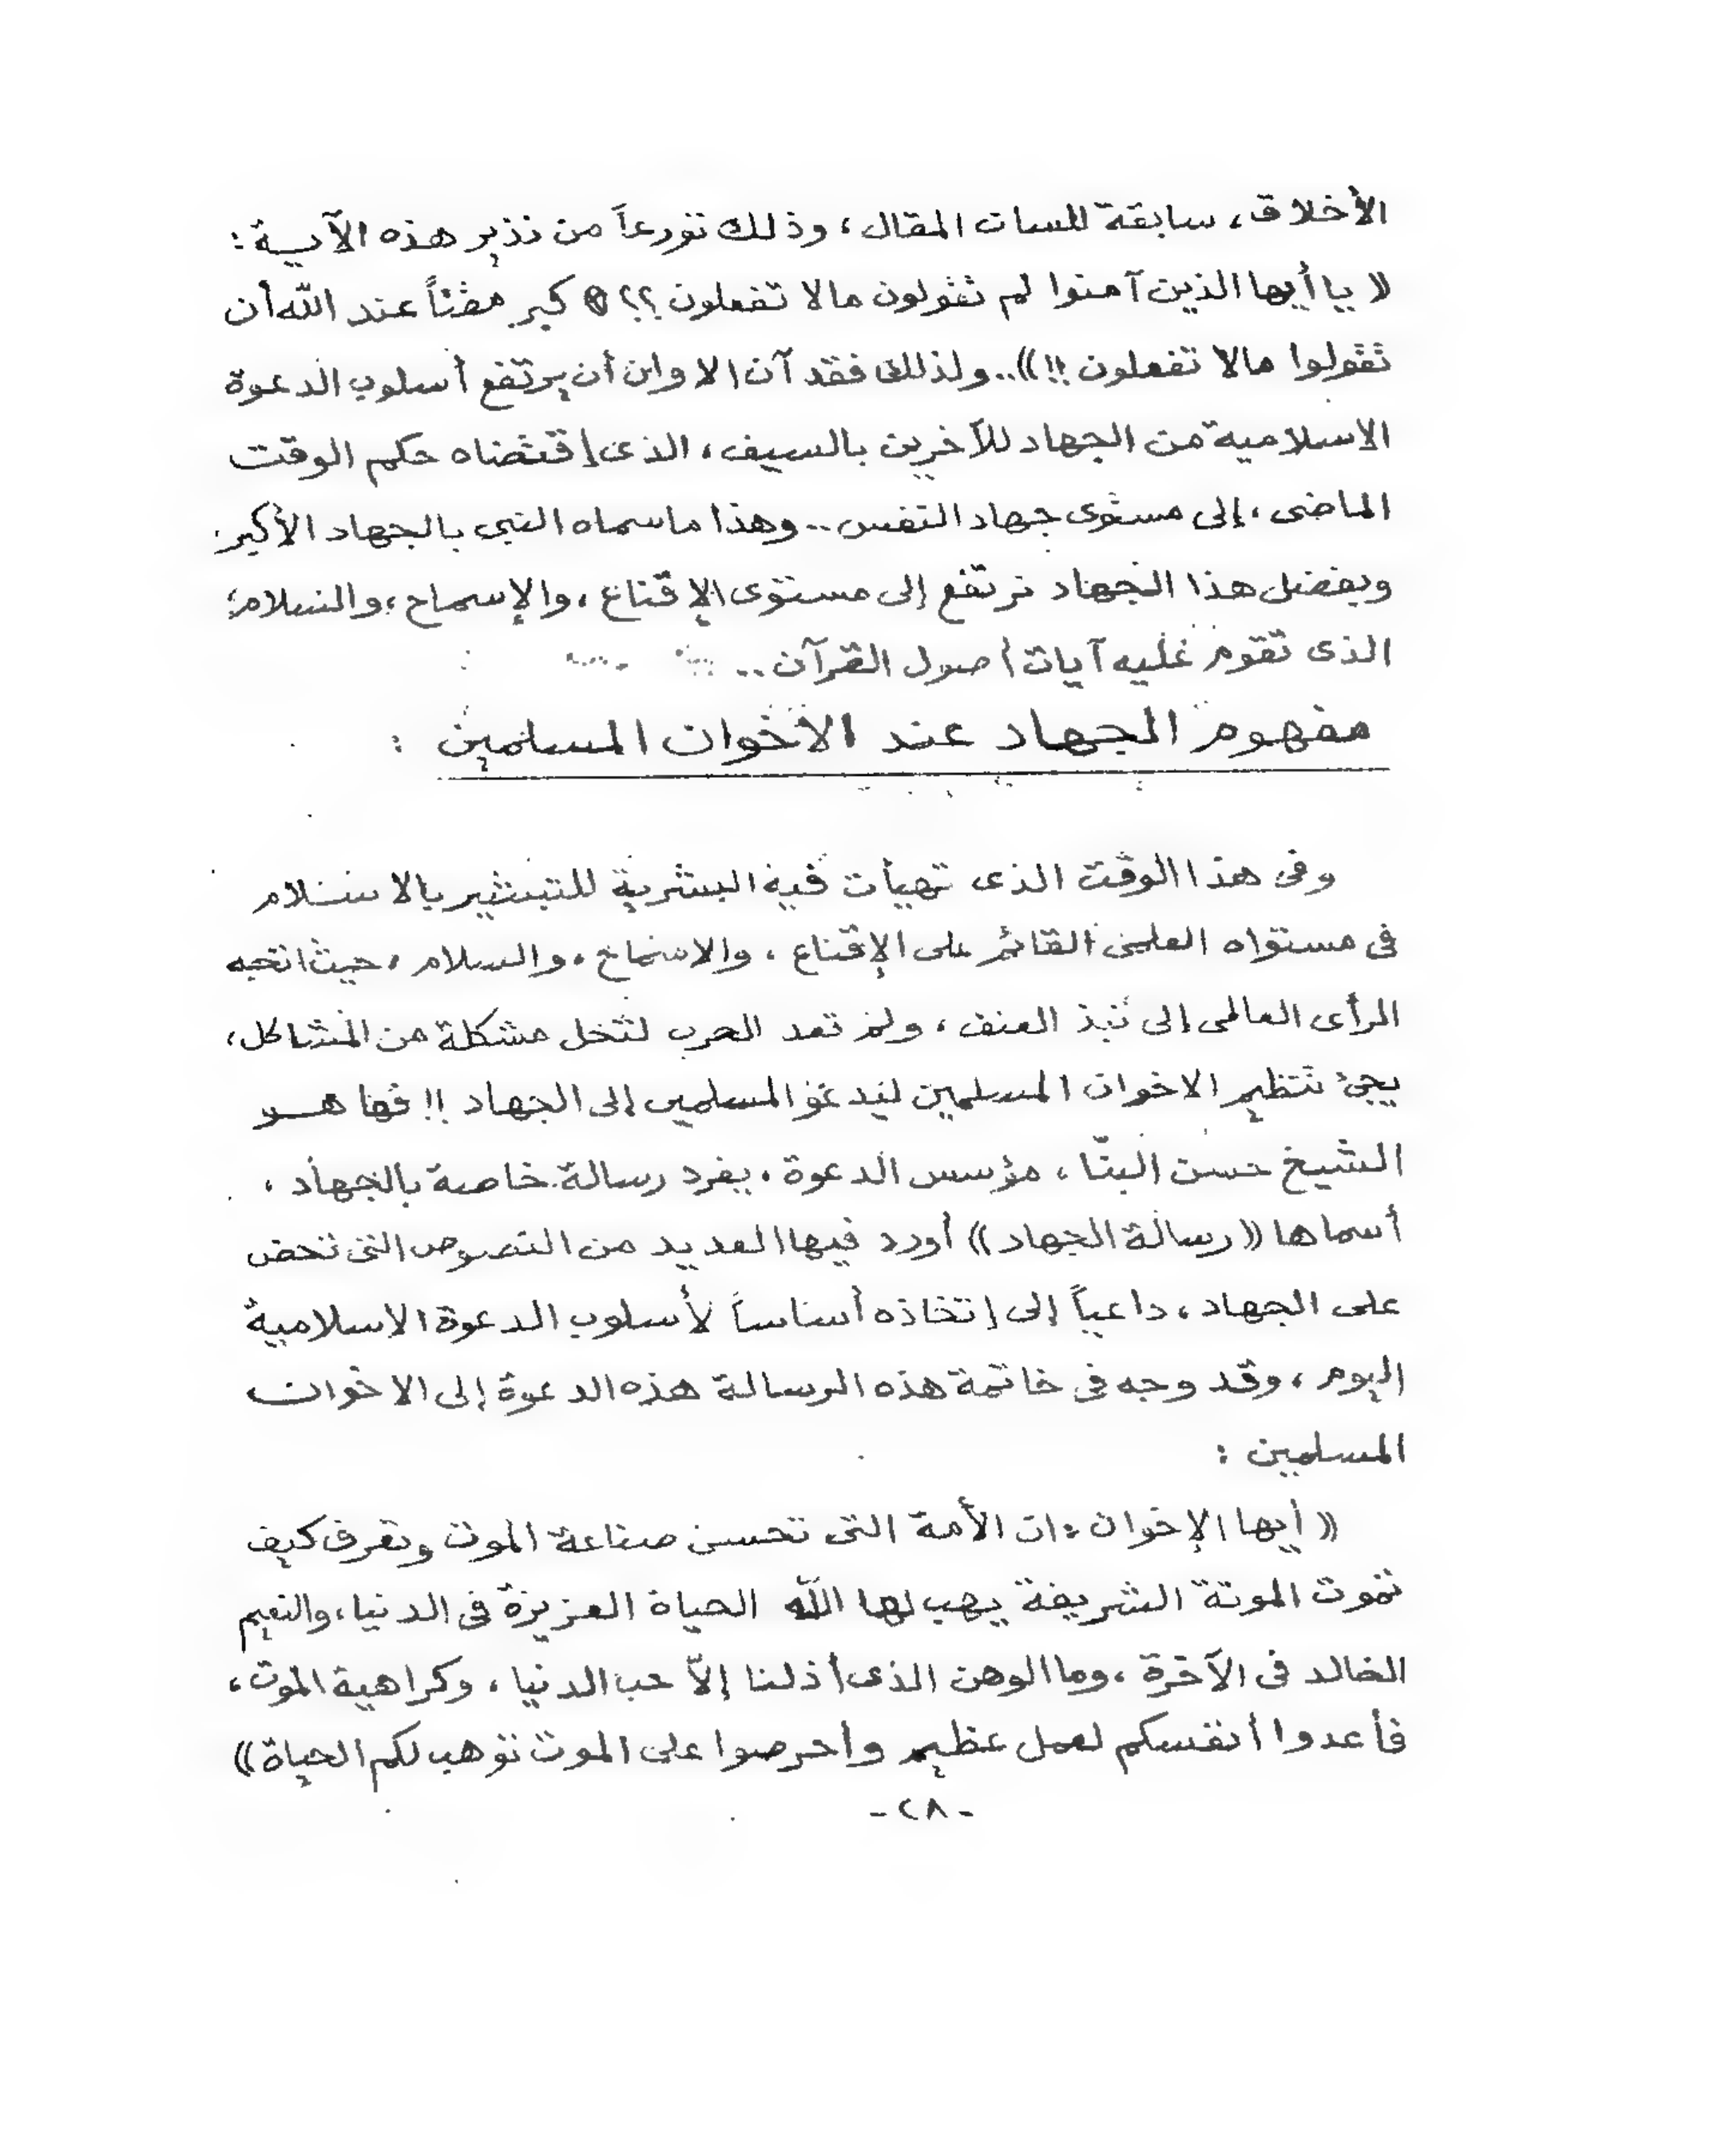 الأخلاق، سابقة للسان المقال، وذلك تورعاً من نذير هذه الآيــة:
(( يا أيها الذين آمنوا لم تقولون مالا تفعلون؟؟ * كبر مقتاً عند الله أن
تقولوا مالا تفعلون!!)).. ولذلك فقد آن الاوان أن يرتفع أسلوب الدعوة
الاسلامية من الجهاد للآخرين بالسيف، الذى إقتضاه حكم الوقت
الماضى، إلى مستوى جهاد النفس.. وهذا ماسماه النبى بالجهاد الأكبر.
وبفضل هذا الجهاد نرتفع إلى مستوى الإقناع، والإسماح، والسلام،
الذى تقوم عليه آيات أصول القرآن..
مفهوم الجهاد عند الاخوان المسلمين :
وفى هذا الوقت الذى تهيأت فيه البشرية للتبشير بالاسـلام
فى مستواه العلمى القائم على الإقناع، والاسماح، والسلام، حيث اتجه
الرأى العالمى إلى نبذ العنف، ولم تعد الحرب لتحل مشكلة من المشاكل،
يجئ تنظيم الاخوان المسلمين ليدعو المسلمين إلى الجهاد!! فها هــو
الشيخ حسن البنّا، مؤسس الدعوة، يفرد رسالة خاصة بالجهاد،
أسماها ((رسالة الجهاد)) أورد فيها العديد من النصوص التى تحض
على الجهاد، داعياً إلى إتخاذه أساساً لأسلوب الدعوة الاسلامية
اليوم، وقد وجه فى خاتمة هذه الرسالة هذه الدعوة إلى الاخوان
المسلمين :
(( أيها الإخوان: ان الأمة التى تحسن صناعة الموت وتعرف كيف
تموت الموتة الشريفة يهب لها الله الحياة العزيزة فى الدنيا، والنعيم
الخالد فى الآخرة، وما الوهن الذى أذلنا إلاّ حب الدنيا، وكراهية الموت،
فأعدوا أنفسكم لعمل عظيم وأحرصوا على الموت توهب لكم الحياة))
-٢٨-